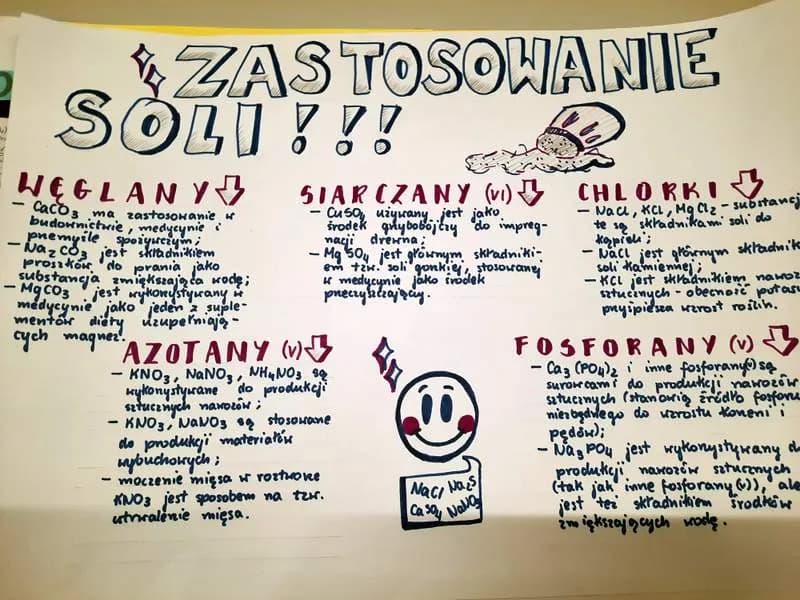 ZASTOSOWANIE
SOLI!!!
WĘGLANY
- CaCO3 ma zastosowanie w
budownictwie, medycynie i
przemyśle spożywczym;
- Na2CO3 jest składnikiem
proszków do prania jako
substancja zmiękczająca wodę;
- MgCO3 jest wykorzystywany w
medycynie jako jeden z suple-
mentów diety uzupełniają-
cych magnez.
SIARCZANY (VI)
- CuSO4 używany jest jako
środek grzybobójczy do impreg-
nacji drewna;
- MgSO4 jest głównym składniki-
em tzw. soli gorzkiej, stosowanej
w medycynie jako środek
przeczyszczający.
CHLORKI
- NaCl, KCl, MgCl2 - substancje
te są składnikami soli do
kąpieli;
- NaCl jest głównym składnik
soli kamiennej;
- KCl jest składnikiem nawoz
sztucznych - obecność potasu
przyśpiesza wzrost roślin.
AZOTANY (V)
- KNO3, NaNO3, NH4NO3 są
wykorzystywane do produkcji
sztucznych nawozów;
- KNO3, NaNO3 są stosowane
do produkcji materiałów
wybuchowych;
- moczenie mięsa w roztworze
KNO3 jest sposobem na tzw.
utrwalenie mięsa.
NaCl Na2S
CaSO4 NaNO3
FOSFORANY (V)
- Ca3(PO4)2 i inne fosforany(V) są
surowcami do produkcji nawozów
sztucznych (stanowią źródło fosforu
niezbędnego do wzrostu korzeni i
pędów);
- Na3PO4 jest wykorzystywany d
produkcji nawozów sztucznych
(tak jak inne fosforany(V)), ale
jest też składnikiem środków
zmiększających wodę.